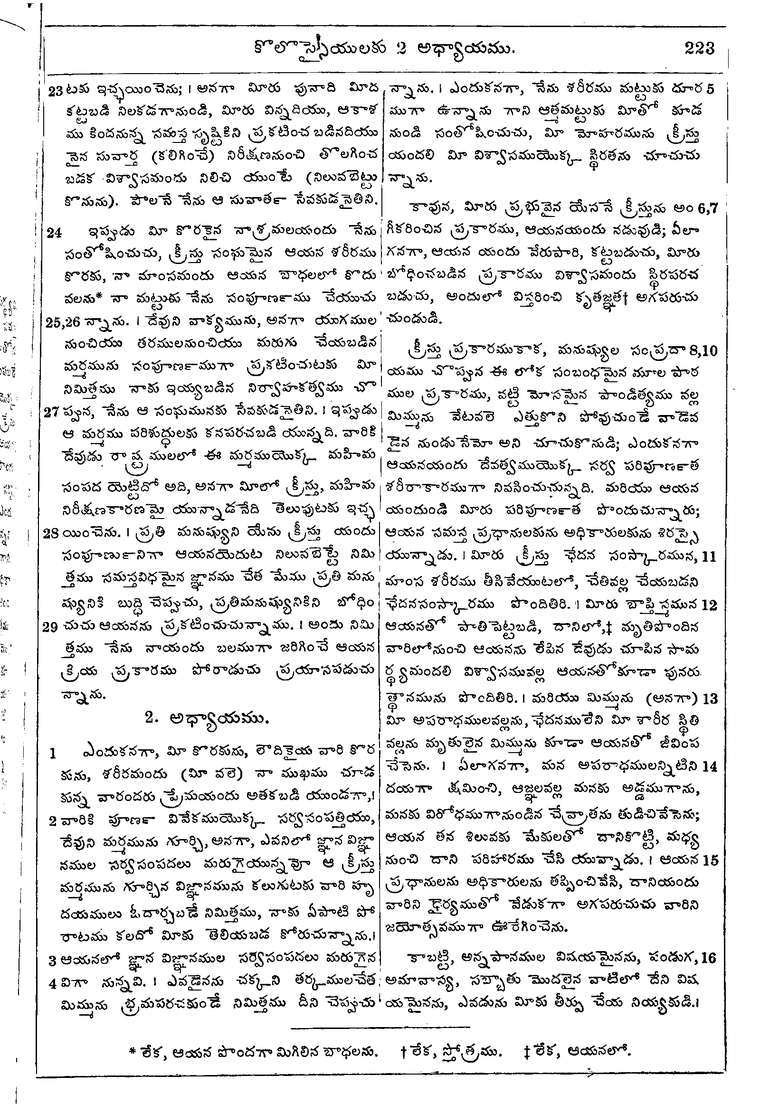 కొలొస్సైయులకు 2 అధ్యాయము. 223
23 టకు ఇచ్ఛయించెను; । అనగా మీరు పునాది మీద
కట్టబడి నిలకడగానుండి, మీరు విన్నదియు, ఆకాశ
ము కిందనున్న సమస్త సృష్టికిని ప్రకటించ బడినదియు
నైన సువార్త (కలిగించే) నిరీక్షణనుంచి తొలగించ
బడక విశ్వాసమందు నిలిచి యుంటే (నిలువబెట్టు
కొనును). పౌలనే నేను ఆ సువార్తకా సేవకుడనైతిని.
24 ఇప్పుడు మీ కొరకైన నాశ్రమలయందు నేను
సంతోషించుచు, క్రీస్తు సంఘమైన ఆయన శరీరము
కొరకు, నా మాంసమందు ఆయన బాధలలో కొదు
వలను* నా మట్టుకు నేను సంపూర్ణము చేయుచు
25,26 న్నాను. । దేవుని వాక్యమును, అనగా యుగముల
నుంచియు తరములనుంచియు మరుగు చేయబడిన
మర్మమును సంపూర్ణముగా ప్రకటించుటకు మీ
నిమిత్తము నాకు ఇయ్యబడిన నిర్వాహకత్వము చొ
27 ప్పున, నేను ఆ సంఘమునకు సేవకుడనైతిని. । ఇప్పుడు
ఆ మర్మము పరిశుద్ధులకు కనపరచబడి యున్నది. వారికి
దేవుడు రాష్ట్రములలో ఈ మర్మముయొక్క మహిమ
సంపద యెట్టిదో అది, అనగా మీలో క్రీస్తు, మహిమ
నిరీక్షణకారణమై యున్నాడనేది తెలుపుటకు ఇచ్ఛ
28 యించెను. । ప్రతి మనుష్యుని యేసు క్రీస్తు యందు
సంపూర్ణునిగా ఆయనయెదుట నిలువబెట్టే నిమి
త్తము సమస్తవిధమైన జ్ఞానము చేత మేము ప్రతి మను
ష్యునికి బుద్ధి చెప్పుచు, ప్రతిమనుష్యునికిని బోధిం
29 చుచు ఆయనను ప్రకటించుచున్నాము. । అందు నిమి
త్తము నేను నాయందు బలముగా జరిగించే ఆయన
క్రియ ప్రకారము పోరాడుచు ప్రయాసపడుచు
న్నాను.
2. అధ్యాయము.
1 ఎందుకనగా, మీ కొరకును, లౌదికైయ వారి కొర
కును, శరీరమందు (మీ వలె) నా ముఖము చూడ
కున్న వారందరు ప్రేమయందు అతకబడి యుండగా,।
2 వారికి పూర్ణ వివేకముయొక్క సర్వసంపత్తియు,
దేవుని మర్మమును గూర్చి, అనగా, ఎవనిలో జ్ఞాన విజ్ఞా
నముల సర్వసంపదలు మరుగైయున్నవో ఆ క్రీస్తు
మర్మమును గూర్చిన విజ్ఞానమును కలుగుటకు వారి హృ
దయములు ఓదార్చబడే నిమిత్తము, నాకు ఏపాటి పో
రాటము కలదో మీకు తెలియబడ కోరుచున్నాను.।
3 ఆయనలో జ్ఞాన విజ్ఞానముల సర్వసంపదలు మరుగైన
4 విగా నున్నవి. । ఎవడైనను చక్కని తర్కములచేత
మిమ్మును భ్రమపరచకుండే నిమిత్తము దీని చెప్పుచు
న్నాను. । ఎందుకనగా, నేను శరీరము మట్టుకు దూర 5
ముగా ఉన్నాను గాని ఆత్మమట్టుకు మీతో కూడ
నుండి సంతోషించుచు, మీ మోహరమును క్రీస్తు
యందలి మీ విశ్వాసముయొక్క స్థిరతను చూచుచు
న్నాను.
కావున, మీరు ప్రభువైన యేసనే క్రీస్తును అం 6,7
గీకరించిన ప్రకారము, ఆయనయందు నడువుడి; ఏలా
గనగా, ఆయన యందు వేరుపారి, కట్టబడుచు, మీరు
బోధించబడిన ప్రకారము విశ్వాసమందు స్థిరపరచ
బడుచు, అందులో విస్తరించి కృతజ్ఞత† అగపరుచు
చుండుడి.
క్రీస్తు ప్రకారముకాక, మనుష్యుల సంప్రదా 8,10
యము చొప్పున ఈ లోక సంబంధమైన మూల పాఠ
ముల ప్రకారము, వట్టి మోసమైన పాండిత్యము వల్ల
మిమ్మును వేటవలె ఎత్తుకొని పోవుచుండే వాడెవ
డైన నుండునేమో అని చూచుకొనుడి; ఎందుకనగా
ఆయనయందు దేవత్వముయొక్క సర్వ పరిపూర్ణత
శరీరాకారముగా నివసించుచున్నది. మరియు ఆయన
యందుండి మీరు పరిపూర్ణత పొందుచున్నారు;
ఆయన సమస్త ప్రధానులకును అధికారులకును శిరస్సై
యున్నాడు. । మీరు క్రీస్తు ఛేదన సంస్కారమున, 11
మాంస శరీరము తీసివేయుటలో, చేతివల్ల చేయబడని
ఛేదనసంస్కారము పొందితిరి. । మీరు బాప్తిస్మమున 12
ఆయనతో పాతిపెట్టబడి, దానిలో,‡ మృతిపొందిన
వారిలోనుంచి ఆయనను లేపిన దేవుడు చూపిన సామ
ర్థ్యమందలి విశ్వాసమువల్ల ఆయనతోకూడా పునరు
త్థానమును పొందితిరి. । మరియు మిమ్మును (అనగా) 13
మీ అపరాధములవల్లను, ఛేదనములేని మీ శారీర స్థితి
వల్లను మృతులైన మిమ్మును కూడా ఆయనతో జీవింప
చేసెను. । ఏలాగనగా, మన అపరాధములన్నిటిని 14
దయగా క్షమించి, ఆజ్ఞలవల్ల మనకు అడ్డముగాను,
మనకు విరోధముగానుండిన చేవ్రాతను తుడిచివేసెను;
ఆయన తన శిలువకు మేకులతో దానికొట్టి, మధ్య
నుంచి దాని పరిహారము చేసి యున్నాడు. । ఆయన 15
ప్రధానులను అధికారులను తప్పించివేసి, దానియందు
వారిని ధైర్యముతో వేడుకగా అగపరుచుచు వారిని
జయోత్సవముగా ఊరేగించెను.
కాబట్టి, అన్నపానముల విషయమైనను, పండుగ, 16
అమావాస్య, సబ్బాతు మొదలైన వాటిలో దేని విష
యమైనను, ఎవడును మీకు తీర్పు చేయ నియ్యకుడి.।
* లేక, ఆయన పొందగా మిగిలిన బాధలను. † లేక, స్తోత్రము. ‡ లేక, ఆయనలో.